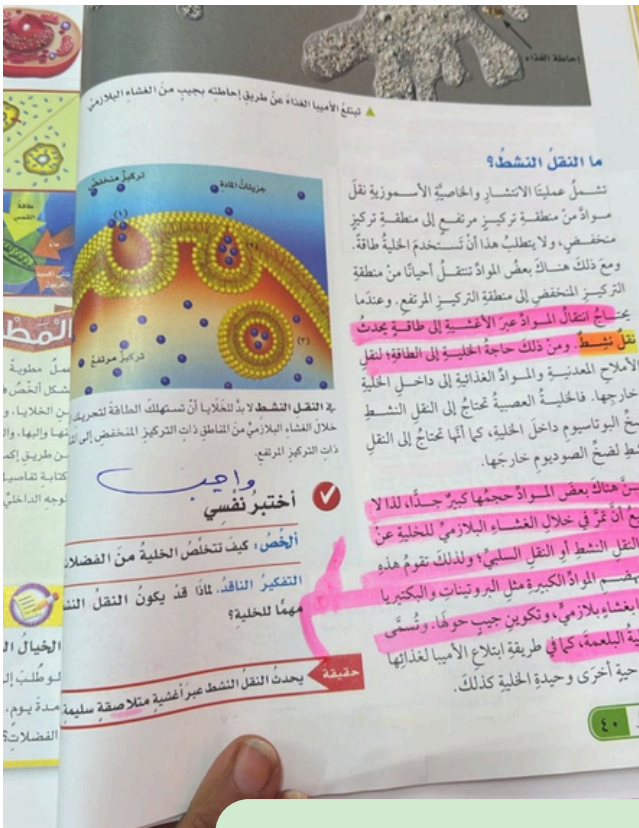 إحاطة الغذاء
▲ تبتلعُ الأميبا الغذاءَ عنْ طريقِ إحاطتِه بجيبٍ منَ الغشاءِ البلازميِّ
ما النقلُ النشطُ؟
تشملُ عمليتَا الانتشارِ والخاصيَّةِ الأسموزيةِ نقلَ
موادَّ منْ منطقةِ تركيزٍ مرتفعٍ إلى منطقةِ تركيزٍ
منخفضٍ، ولا يتطلبُ هذا أنْ تستخدمَ الخليةُ طاقةً.
ومعَ ذلكَ هناكَ بعضُ الموادِّ تنتقلُ أحيانًا منْ منطقةِ
التركيزِ المنخفضِ إلى منطقةِ التركيزِ المرتفعِ. وعندَما
يحتاجُ انتقالُ الموادِّ عبرَ الأغشيةِ إلى طاقةٍ يحدثُ
نقلٌ نشِطٌ. ومنْ ذلكَ حاجةُ الخليةِ إلى الطاقةِ؛ لنقلِ
الأملاحِ المعدنيةِ والموادِّ الغذائيةِ إلى داخلِ الخليةِ
خارجِها. فالخليةُ العصبيةُ تحتاجُ إلى النقلِ النشطِ
البوتاسيومِ داخلَ الخليةِ، كما أنَّها تحتاجُ إلى النقلِ
لضخِّ الصوديومِ خارجَها.
هناكَ بعضُ الموادِّ حجمُها كبيرٌ جدًّا، لذا لا
أنْ تمرَّ في خلالِ الغشاءِ البلازميِّ للخليةِ عنْ
النقلِ النشطِ أو النقلِ السلبيِّ؛ ولذلكَ تقومُ هذهِ
الموادِّ الكبيرةِ مثلِ البروتيناتِ والبكتيريا
بغشاءٍ بلازميٍّ، وتكوينِ جيبٍ حولَها. وتُسمَّى
البلعمةَ، كما في طريقةِ ابتلاعِ الأميبا لغذائِها
أخرَى وحيدةِ الخليةِ كذلكَ.
٤٠
تركيزٌ منخفضٌ
جزيئاتُ المادةِ
(١)
(٢)
(٣)
تركيزٌ مرتفعٌ
في النقلِ النشطِ لا بدَّ للخلايا أنْ تستهلكَ الطاقةَ لتحريكِ
خلالَ الغشاءِ البلازميِّ منَ المناطقِ ذاتِ التركيزِ المنخفضِ إلى
ذاتِ التركيزِ المرتفعِ.
واجب
أختبرُ نفْسِي
ألخّصُ: كيفَ تتخلَّصُ الخليةُ منَ الفضلاتِ
التفكيرُ الناقدُ. لماذَا قدْ يكونُ النقلُ
مهمًّا للخليةِ؟
حقيقة
يحدثُ النقلُ النشطُ عبرَ أغشيةٍ متلاصقةٍ سليمةٍ
طاقة
الشمس
ماء